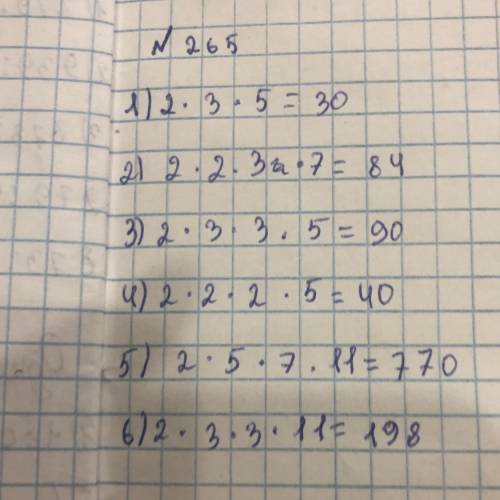 № 265
1) 2 · 3 · 5 = 30
2) 2 · 2 · 3 · 7 = 84
3) 2 · 3 · 3 · 5 = 90
4) 2 · 2 · 2 · 5 = 40
5) 2 · 5 · 7 · 11 = 770
6) 2 · 3 · 3 · 11 = 198